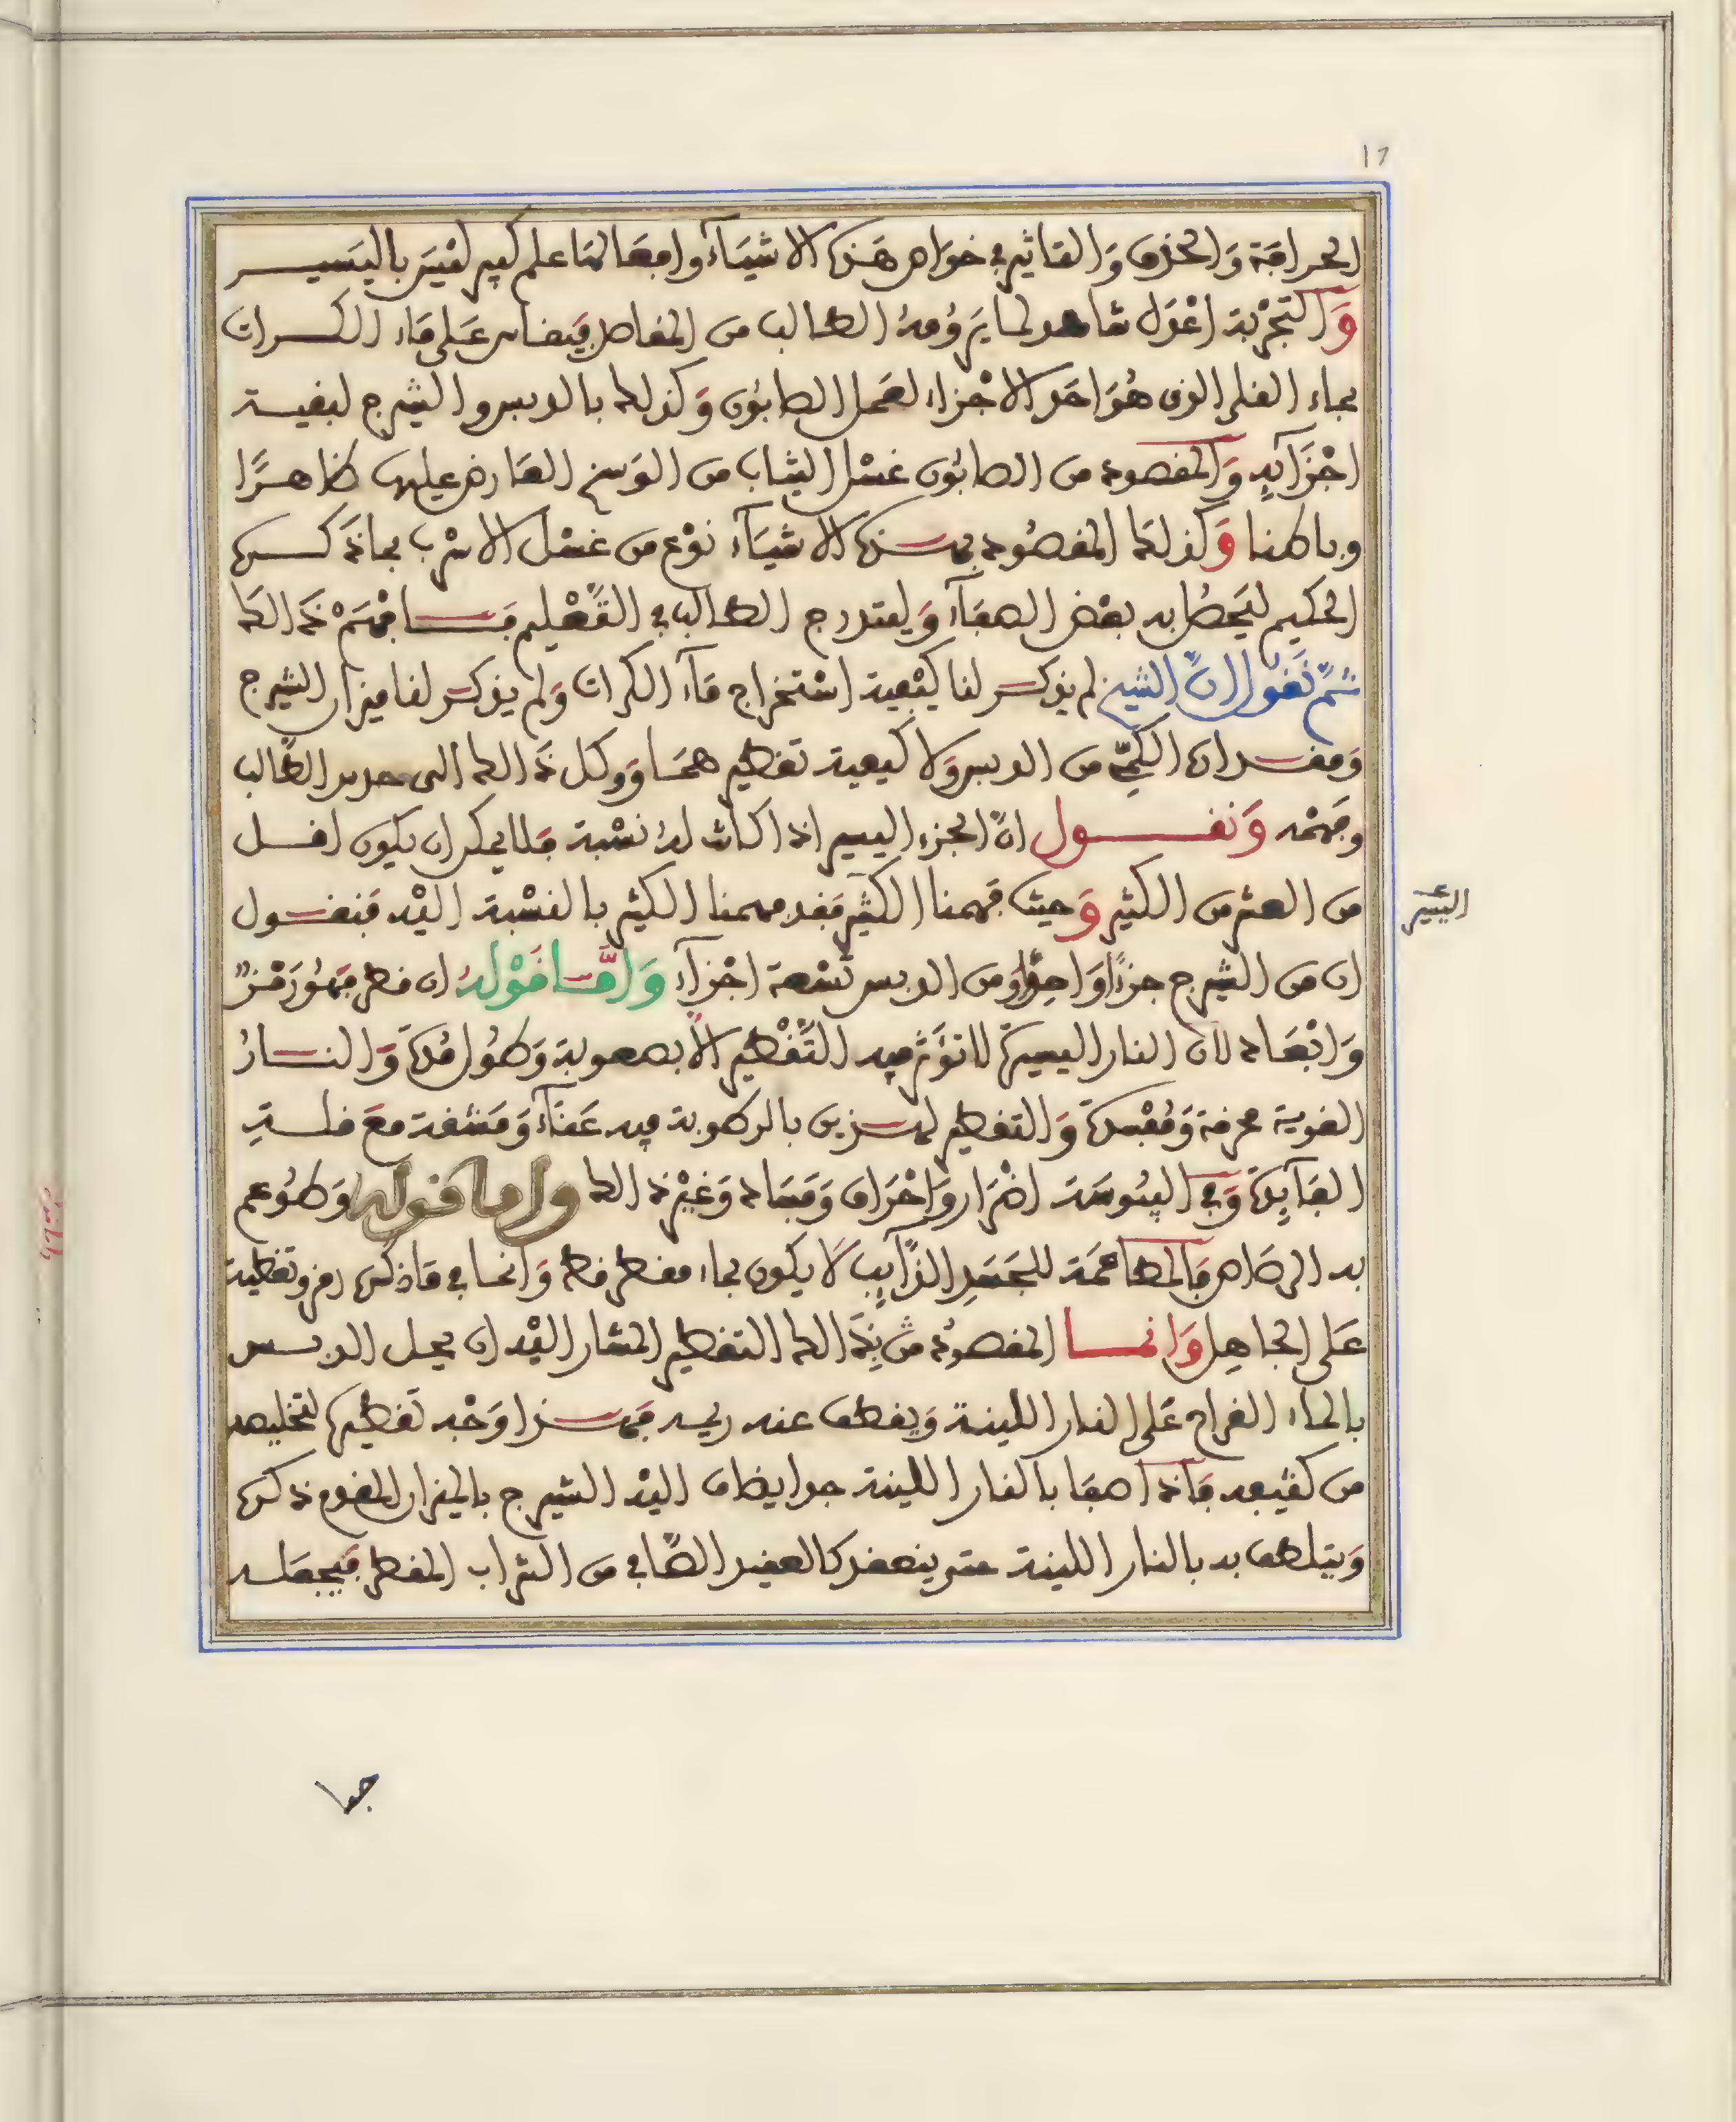 17
الحرافة والحذق والتاثير في خواص هذه الاشياء وافعالها علم كبير ليس باليسير
والتجربة اعدل شاهد لما يرومه الطالب من المقاصد فيضاف على ماء الكراث
بماء القلي الذي هو احد الاجزاء لعمل الصابون وكذلك بالدبس والشيرج لبقية
اجزايه والمقصود من الصابون غسل الثياب من الوسخ العارض عليها ظاهرا
وباطنا وكذلك المقصود بهذه الاشياء نوع من غسل الاسرب بما ذكره
الحكيم ليحصل به بعض الصفاء وليتدرج الطالب في التعليم فافهم ذالك
ثم نقول ان الشيخ لم يذكر لنا كيفية استخراج ماء الكراث ولم يذكر لنا ميزان الشيرج
ومقدار الكم من الدبس ولا كيفية تقطيرهما ووكل ذالك الى حدس الطالب
وفهمه ونقول ان الجزء اليسير اذا كانت له نسبة فلا يمكن ان يكون اقل
من العشر من الكثير وحيث فهمنا الكثير فقد فهمنا الكثير بالنسبة اليه فنقول
اليسير
ان من الشيرج جزءا واحدا ومن الدبس تسعة اجزاء واما قوله ان قطر فهو رمز
وابعاد لان النار اليسيرة لا تؤثر فيه التقطير الا بصعوبة وطول مدة والنار
القوية محرقة ومفسدة والتقطير لهذين بالرطوبة فيه عناء ومشقة مع قلة
الفايدة وفي اليبوسة اضرار واحراق وفساد وغير ذالك واما قوله وطوعم
به الرصاص فالمطاعمة للجسد الذايب لا يكون بماء مقطر قط وانما في ما ذكره رمز وتغطية
على الجاهل وانما المقصود من ذالك التقطير المشار اليه ان يحل الدبس
بالماء القراح على النار اللينة ويقطف عنه ريمه فهذا وجه تقطيره لتخليصه
من كثيفه فاذا صفا بالنار اللينة جدا يضاف اليه الشيرج بالميزان المقدم ذكره
ويتلطف به بالنار اللينة حتى ينعقد كالعقيد الصافي من الشراب المقطر فيجعله